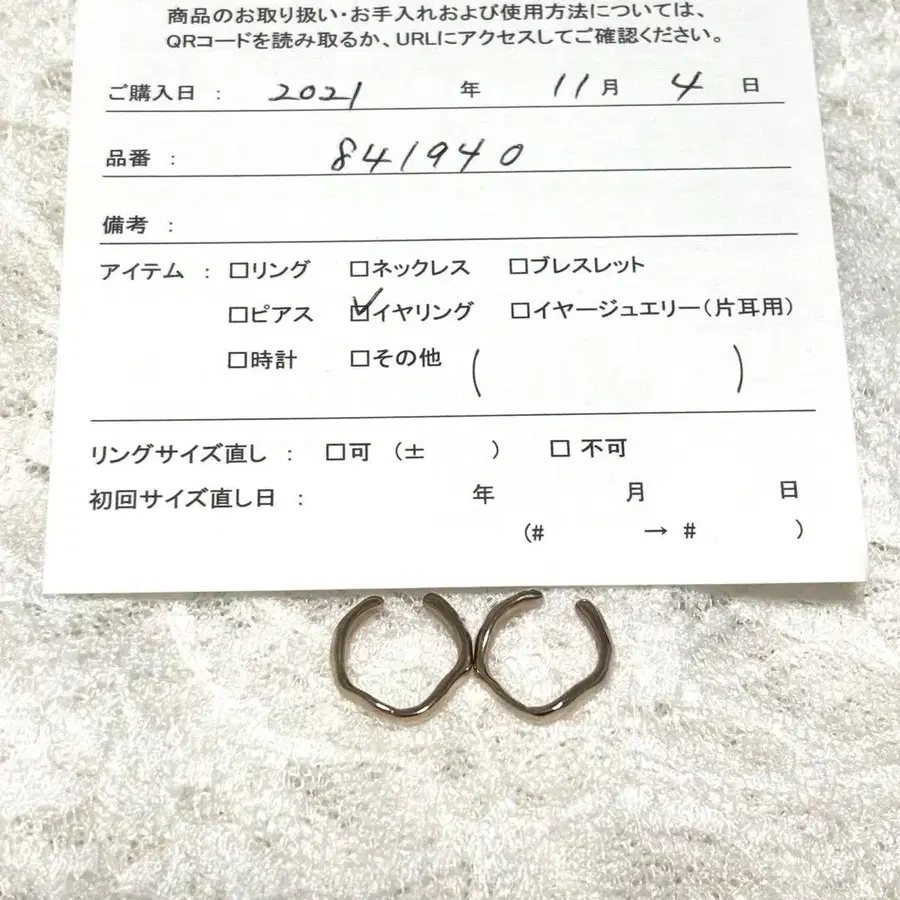 商品のお取り扱い・お手入れおよび使用方法については、
QRコードを読み取るか、URLにアクセスしてご確認ください。
ご購入日 : 2021 年 11 月 4 日
品番 : 841940
備考 :
アイテム : □リング □ネックレス □ブレスレット
□ピアス ☑イヤリング □イヤージュエリー(片耳用)
□時計 □その他 ( )
リングサイズ直し : □可 (± ) □ 不可
初回サイズ直し日 : 年 月 日
(# → # )